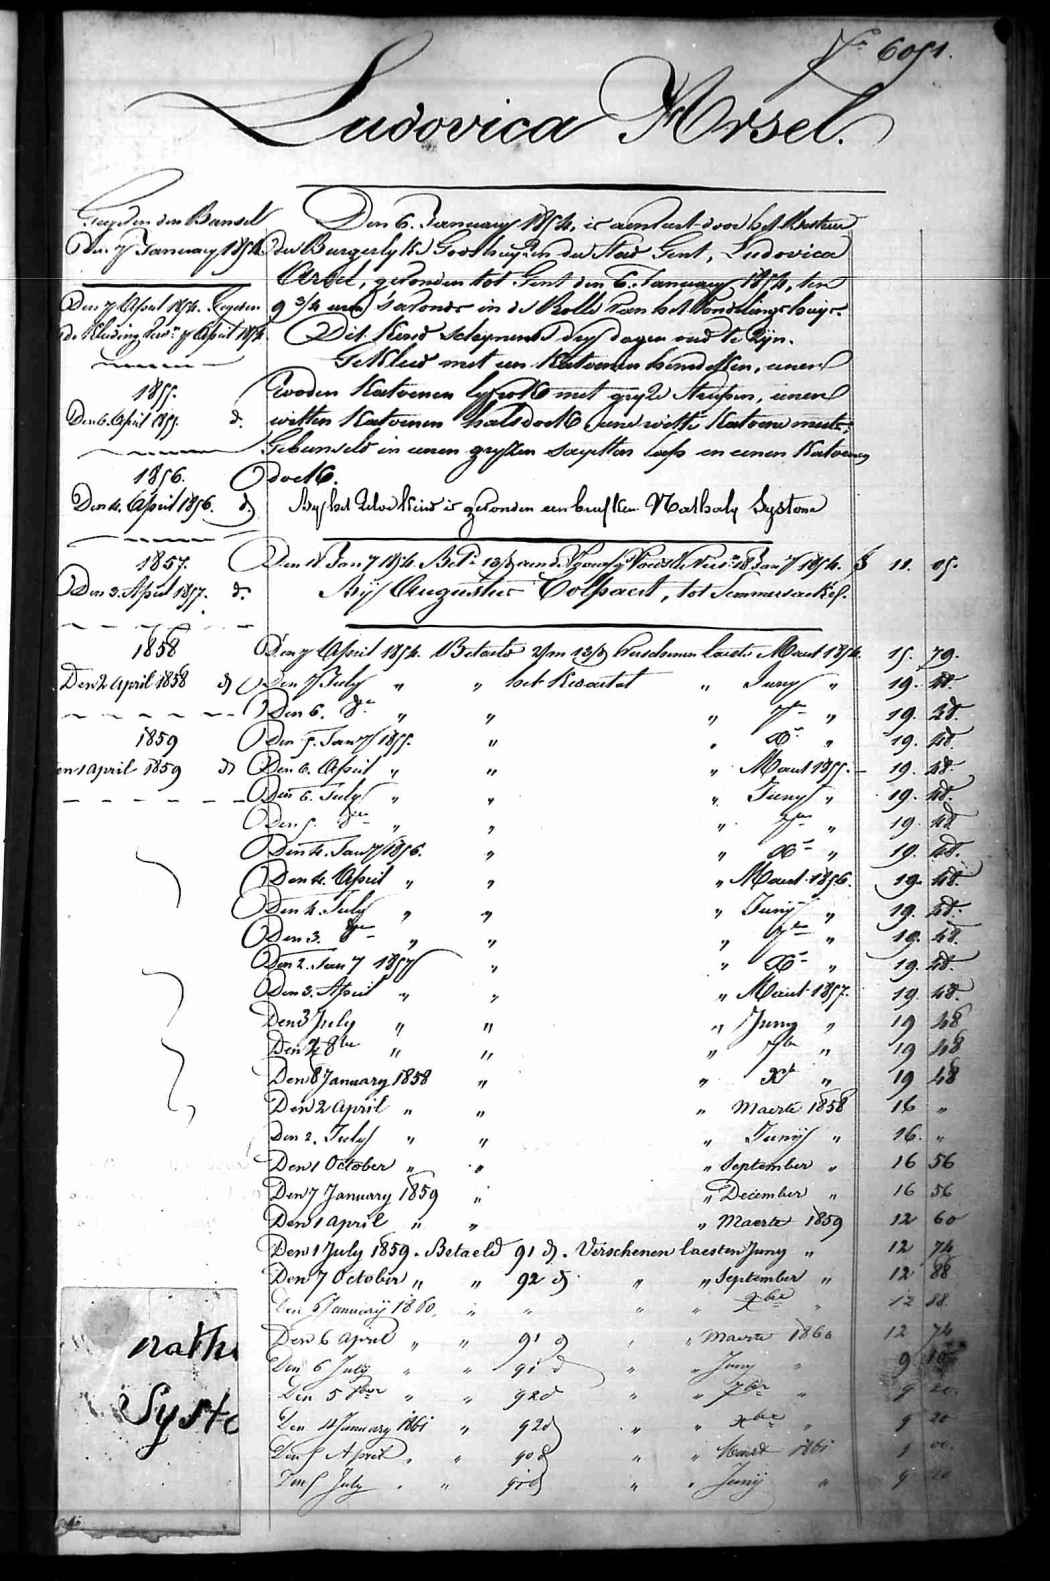 N° 6051.
Ludovica Arsel.
Gegeven den Bunsel
Den 7 January 1854.
Den 7 April 1854. Gegeven
de Kleeding 7 April 1854
1855.
Den 6. April 1855. d.
1856.
Den 4. April 1856. d.
1857.
Den 3. April 1857. d.
1858
Den 2 April 1858 d
1859
en 1 april 1859 d
Den 6. January 1854, is aenveert door het Bestuer
der Burgerlyke Godshuyzen der Stad Gent, Ludovica
Arsel, gevonden tot Gent den 6. January 1854, ten
9 3/4 uren savonds in de Rolle van het Vondelingshuys.
Dit Kind scheynend dry dagen oud te zyn.
Gekleed met een Katoenen hemdeken, eenen
rooden Katoenen met gryze strepen, eenen
witten Katoenen halsdoek, eene witte Katoene muts,
Gebunseld in eenen gryzen sayetten lap en eenen Katoenen
doek.
By het zelve Kind is gevonden een briefken Nathaly Systone
Den 18 Jan^y 1854. 18 Jan^y 1854. f 11. 05.
By Augustus Colpaert, tot Sommersacke.
Den 7 April 1854. Betaeld Verschenen laesten Maert 1854. 15. 79.
Den 7 July " " het Kwartael " Juny " 19. 48.
Den 6. 8^re " " " 7^re " 19. 48.
Den 5. Jan^y 1855. " " X^r " 19. 48.
Den 6. April " " " Maert 1855. 19. 48.
Den 6. July " " " Juny " 19. 48.
Den 5. 8^re " " " 7^re " 19. 48
Den 4. Jan^y 1856. " " X^r " 19. 48.
Den 4. April " " " Maert 1856. 19. 48.
Den 4. July " " " Juny " 19. 48.
Den 3. 8^re " " " 7^re " 19. 48.
Den 2. Jan^y 1857 " " X^r " 19. 48.
Den 3. April " " " Maert 1857. 19. 48.
Den 3 July " " " Juny " 19 48
Den 2 8^bre " " " 7^bre " 19 48
Den 8 January 1858 " " X^r " 19 48
Den 2 April " " " Maerte 1858 16 "
Den 2. July " " " Juny " 16. "
Den 1 October " " " September " 16 56
Den 7 January 1859 " " December " 16 56
Den 1 april " " " Maerte 1859 12 60
Den 1 July 1859. Betaeld 91 d. Verschenen laesten Juny " 12 74
Den 7 October " " 92 d. " " September " 12 88
Den 6 January 1860. " " " " X^bre " 12 88
Den 6 April " " 91 d " " Maerte 1860 12 74
Den 6 July " " 91 d " " Juny " 9
Den 5 8^ber " " 92 d " " 7^ber " 9 20
Den 4 January 1861 " 92 d " " X^bre " 9 20
Den 5 April " " 90 d " " Maert 1861 9 00
Den 5 July " " 91 d " " Juny " 9
nath
Syste